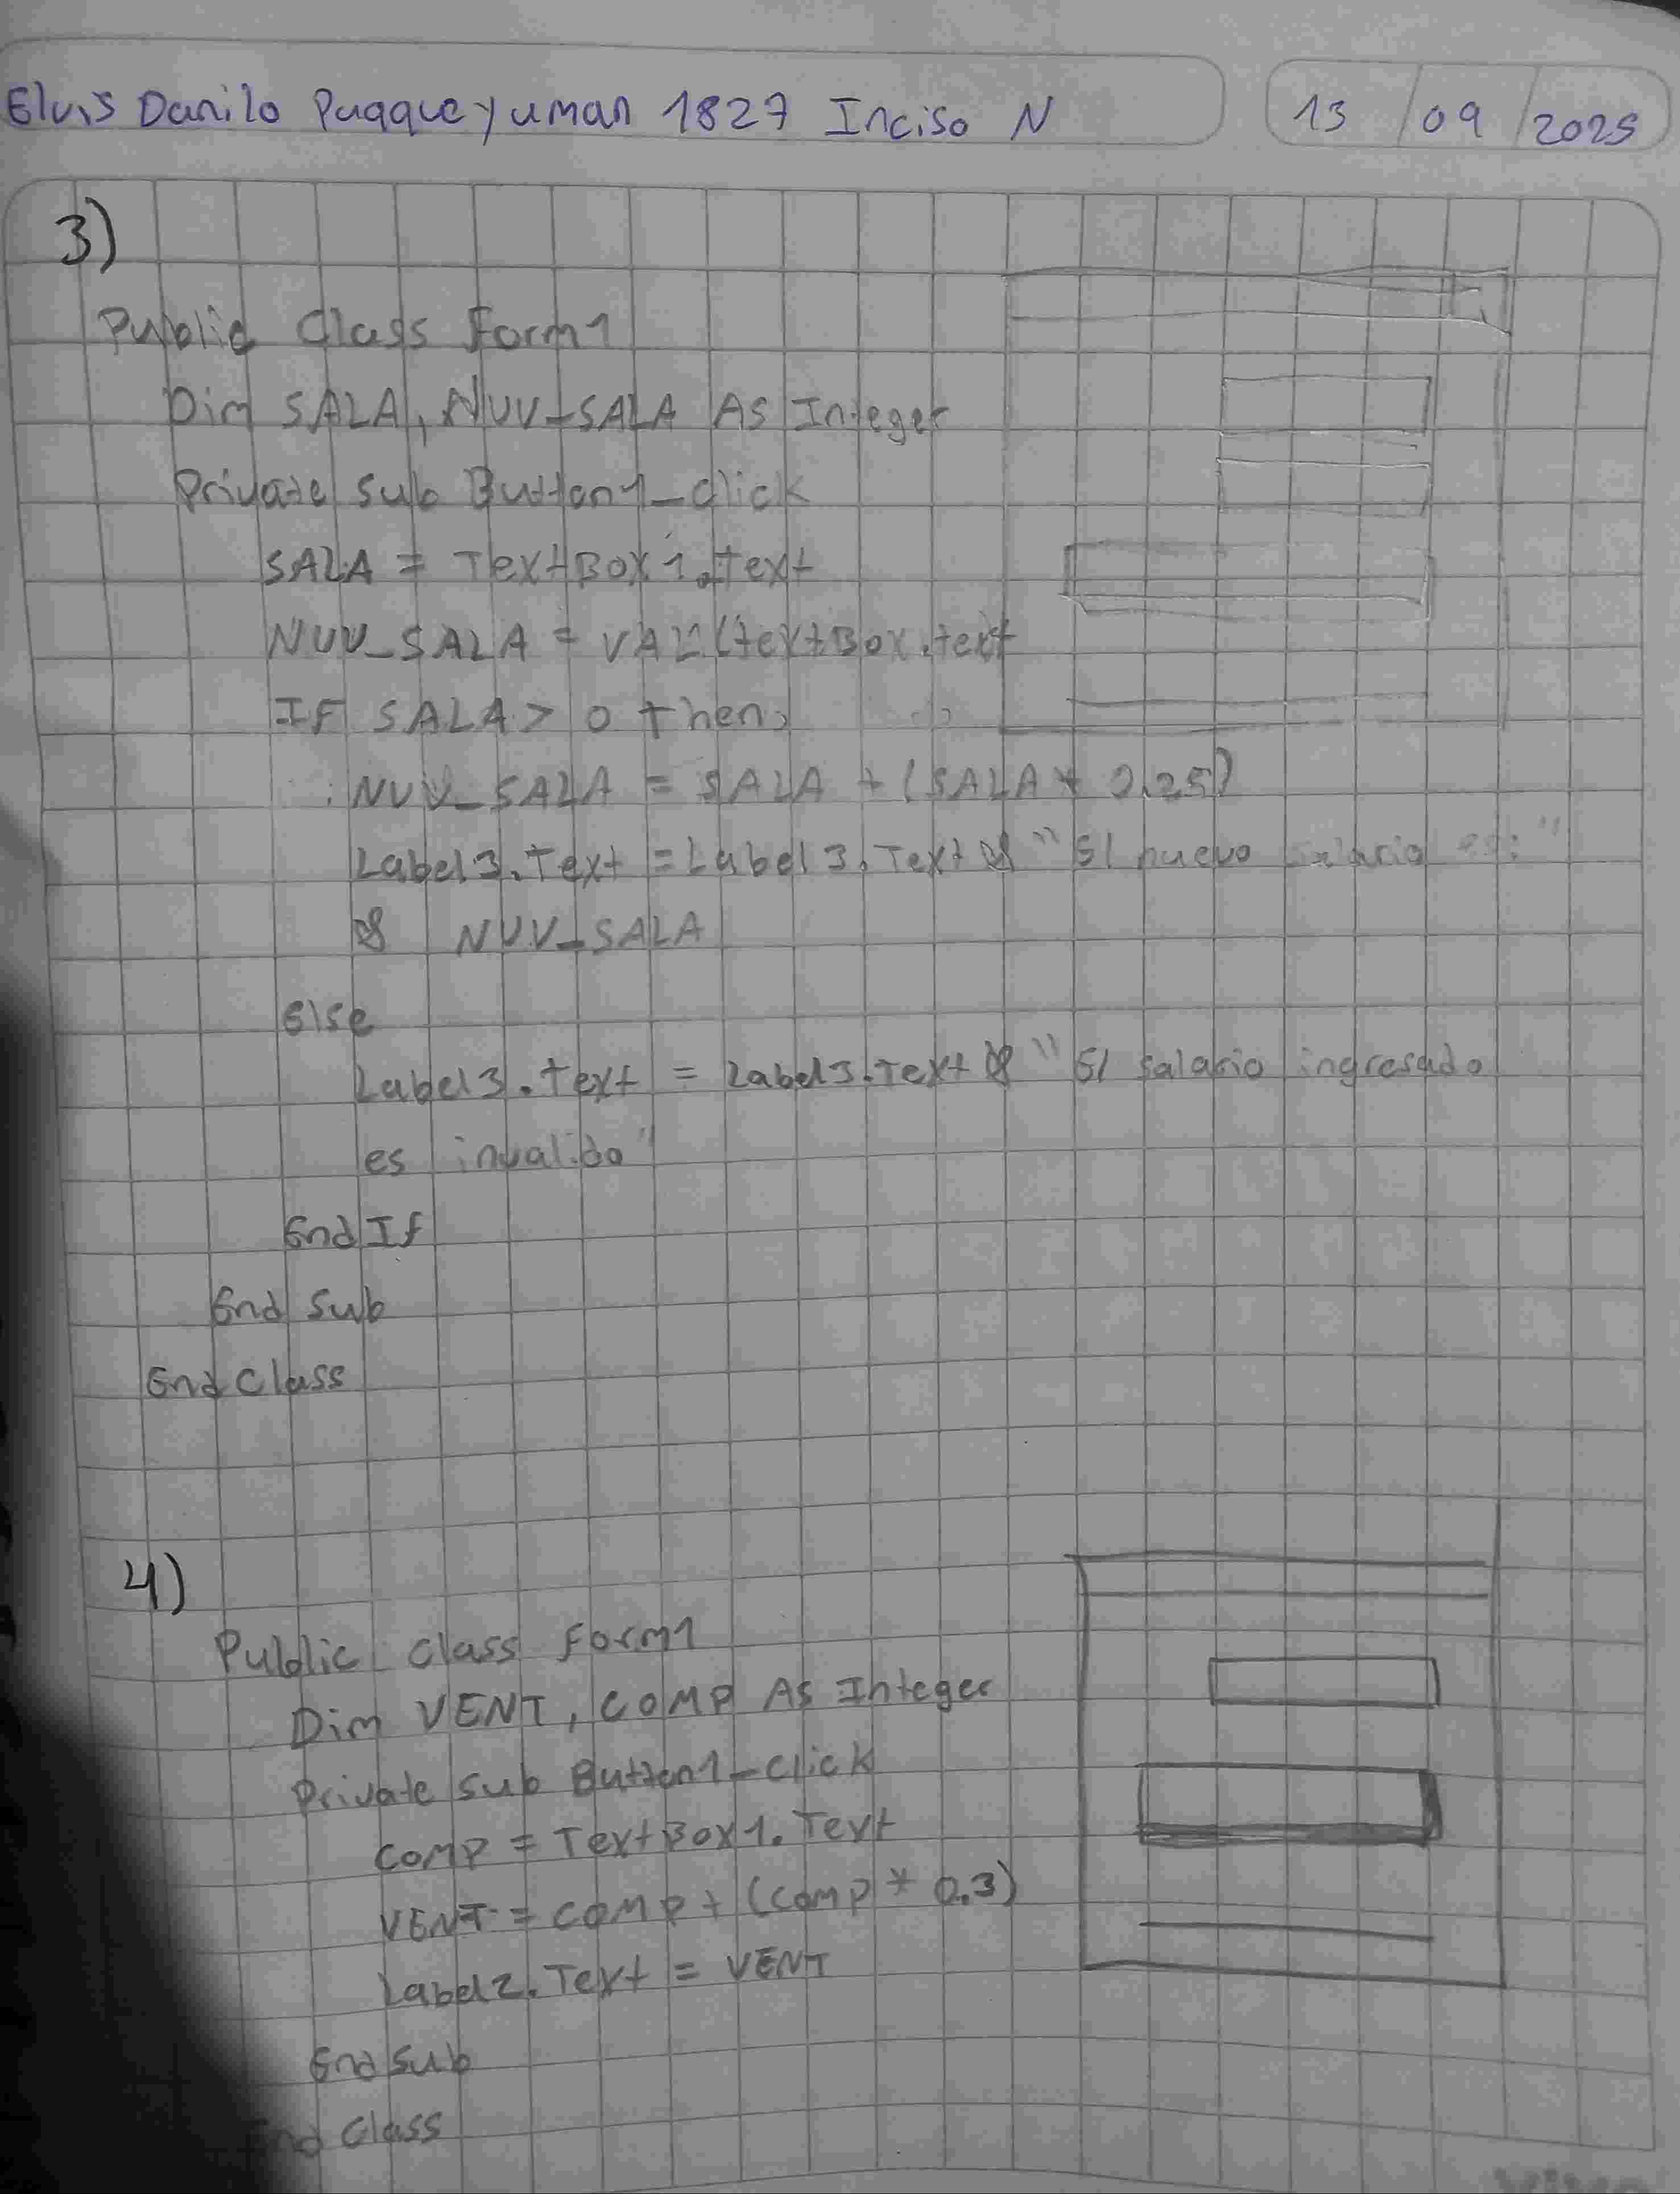 Elvis Danilo Puaque Yuman 1827 Inciso N 13 / 09 / 2025
3)
Public Class Form1
Dim SALA, NUV_SALA As Integer
Private Sub Button1_click
SALA = TextBox1.Text
NUV_SALA = VAL(textBox.text
IF SALA > 0 then
NUV_SALA = SALA + (SALA * 0.25)
Label3.Text = Label3.Text & "El nuevo salario es:"
& NUV_SALA
Else
Label3.text = Label3.Text & "El salario ingresado
es invalido"
End If
End Sub
End Class
4)
Public class Form1
Dim VENT, COMP As Integer
Private Sub Button1_click
COMP = TextBox1.Text
VENT = COMP + (COMP * 0.3)
Label2.Text = VENT
End Sub
End Class